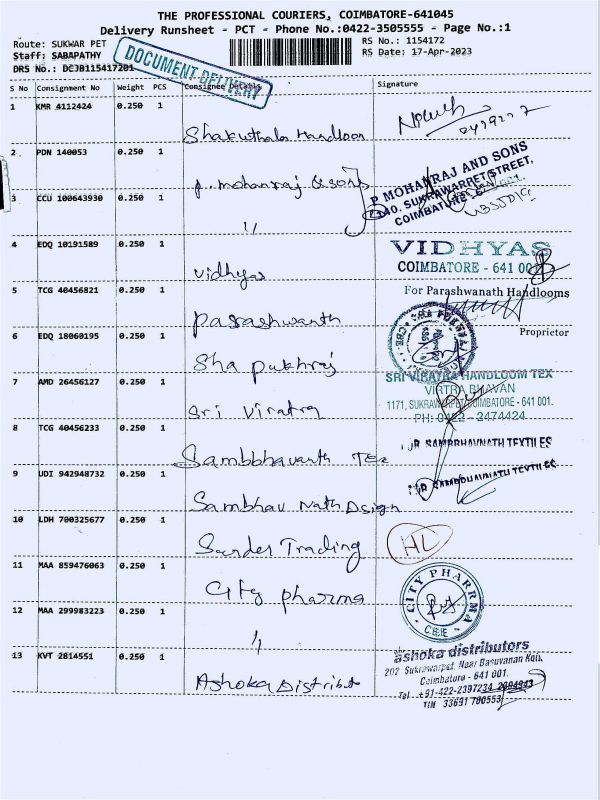 THE PROFESSIONAL COURIERS, COIMBATORE-641045
Delivery Runsheet - PCT - Phone No.:0422-3505555 - Page No.:1
Route: SUKWAR PET
RS No.: 1154172
Staff: SABAPATHY
RS Date: 17-Apr-2023
DRS No.: DCJB115417201
DOCUMENT DELIVERY
S No Consignment No Weight PCS Consignee Details Signature
1 KMR 4112424 0.250 1
Shakuthala Handloom
2 PDN 140053 0.250 1
P. mohanraj & sons
P MOHANRAJ AND SONS
140, SUKRAWARRET STREET,
COIMBATORE
3 CCU 100643930 0.250 1
"
4 EDQ 10191589 0.250 1
Vidhyas
VIDHYAS
COIMBATORE - 641 001
5 TCG 40456821 0.250 1
Parashwanth
For Parashwanath Handlooms
Proprietor
6 EDQ 18060195 0.250 1
Sha pukhraj
SHA PUKHRAJ
CBE.
7 AMD 26456127 0.250 1
Sri Viratra
SRI VIRATRA HANDLOOM TEX
VIRTRA BHAVAN
1171, SUKRAWARPET, COIMBATORE - 641 001.
PH: 0422 - 2474424
8 TCG 40456233 0.250 1
Sambbhavanth Tex
SAMBBHAVNATH TEXTILES
9 UDI 942948732 0.250 1
Sambhav Nath Dsign
SAMBBHAVNATH TEXTILES
10 LDH 700325677 0.250 1
Sunder Trading
HL
11 MAA 859476063 0.250 1
City pharma
CITY PHARRMA
CBE
12 MAA 299983223 0.250 1
"
13 KVT 2814551 0.250 1
Ashoka Distribut
ashoka distributors
202 Sukrawarpet, Near Basuvanan Koil,
Coimbatore - 641 001.
Tel : +91-422-2397234, 2394943
TIN 33691700553